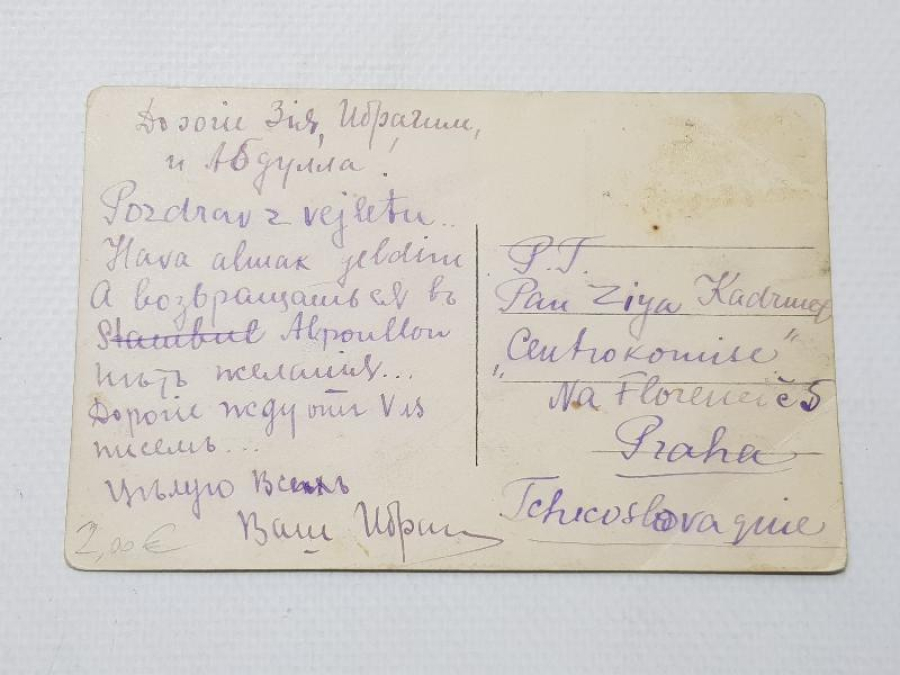 Дорогiе Зiя, Ибрагим,
и Абдулла!
Pozdrav z vejletu..
Hava almak jeldim
А возвращаться въ
Stambul Alpoullou
нѣтъ желанiя...
Дорогiе жду отъ Vas
писемъ...
Цѣлую Всѣхъ
Ваш Ибраг
2,00 €
P.T.
Pan Ziya
„Centrokomise"
Na Florenci č 5
Praha
Tchecoslovaquie